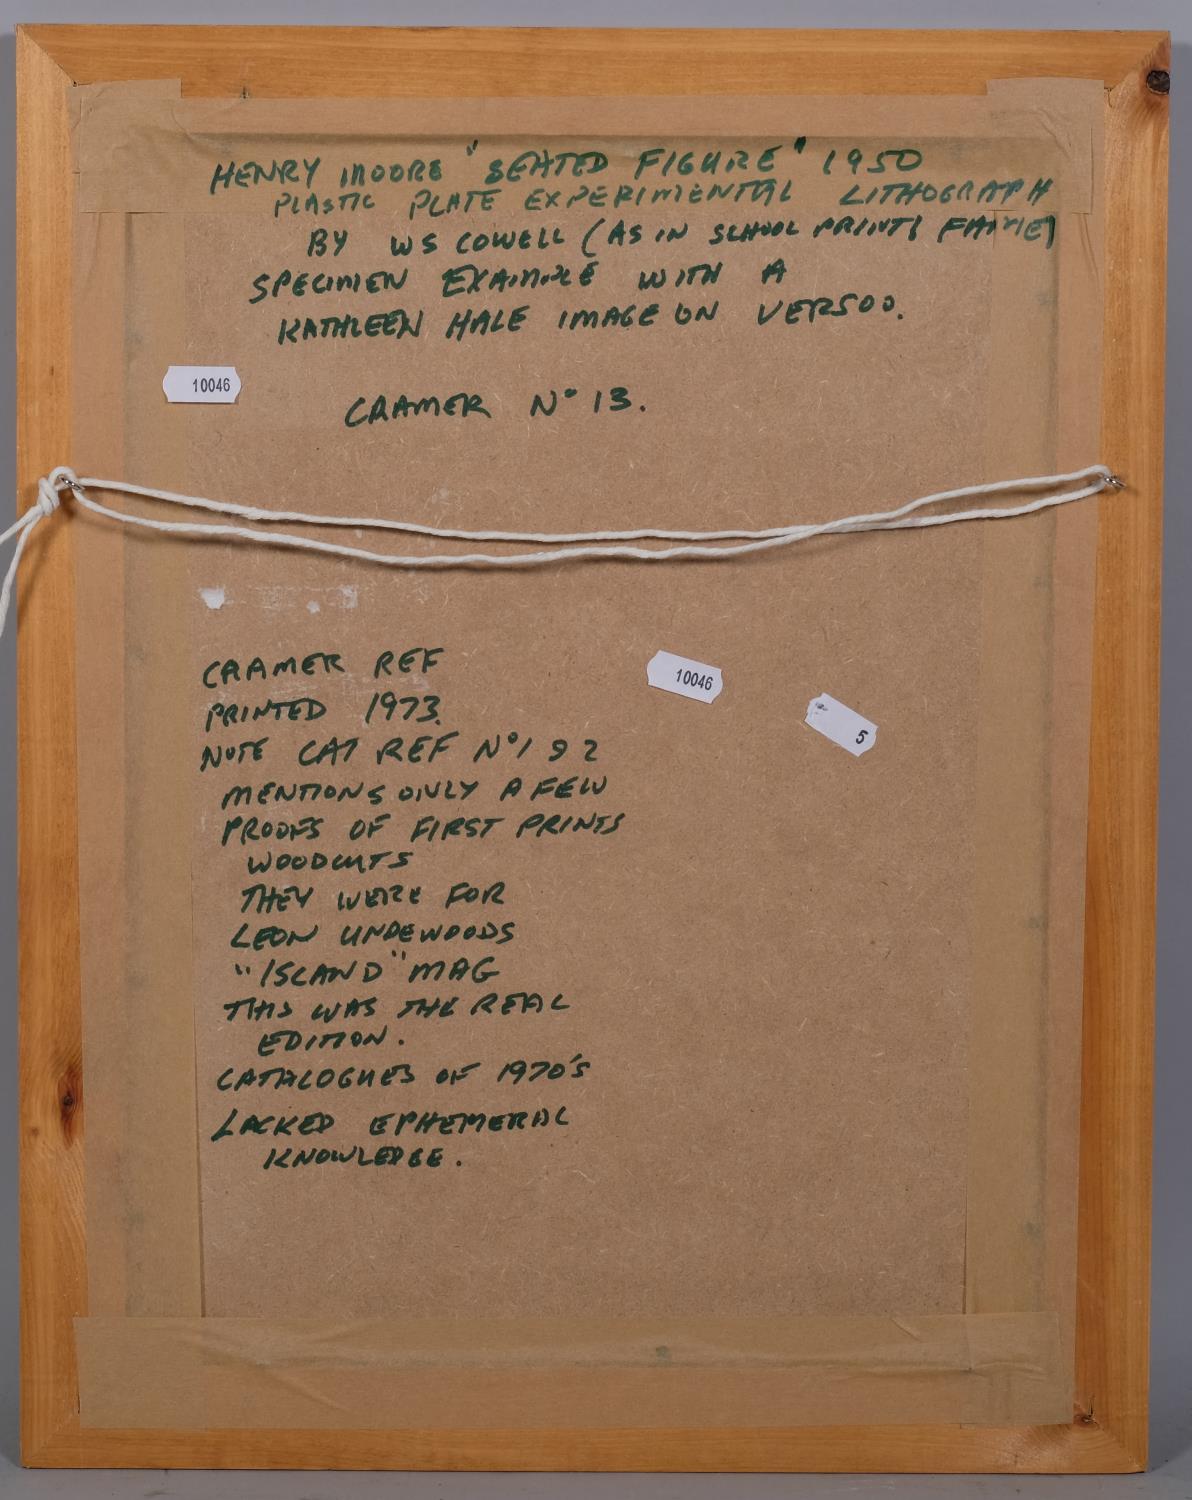 HENRY MOORE "SEATED FIGURE" 1950
PLASTIC PLATE EXPERIMENTAL LITHOGRAPH
BY WS COWELL (AS IN SCHOOL PRINTS FRAME)
SPECIMEN EXAMPLE WITH A
KATHLEEN HALE IMAGE ON VERSOO.
10046
CRAMER Nº 13.
CRAMER REF
PRINTED 1973.
NOTE CAT REF Nº 192
MENTIONS ONLY A FEW
PROOFS OF FIRST PRINTS
WOODCUTS
THEY WERE FOR
LEON UNDEWOODS
"ISLAND" MAG
THIS WAS THE REAL
EDITION.
CATALOGUES OF 1970'S
LACKED EPHEMERAL
KNOWLEDGE.
10046
5